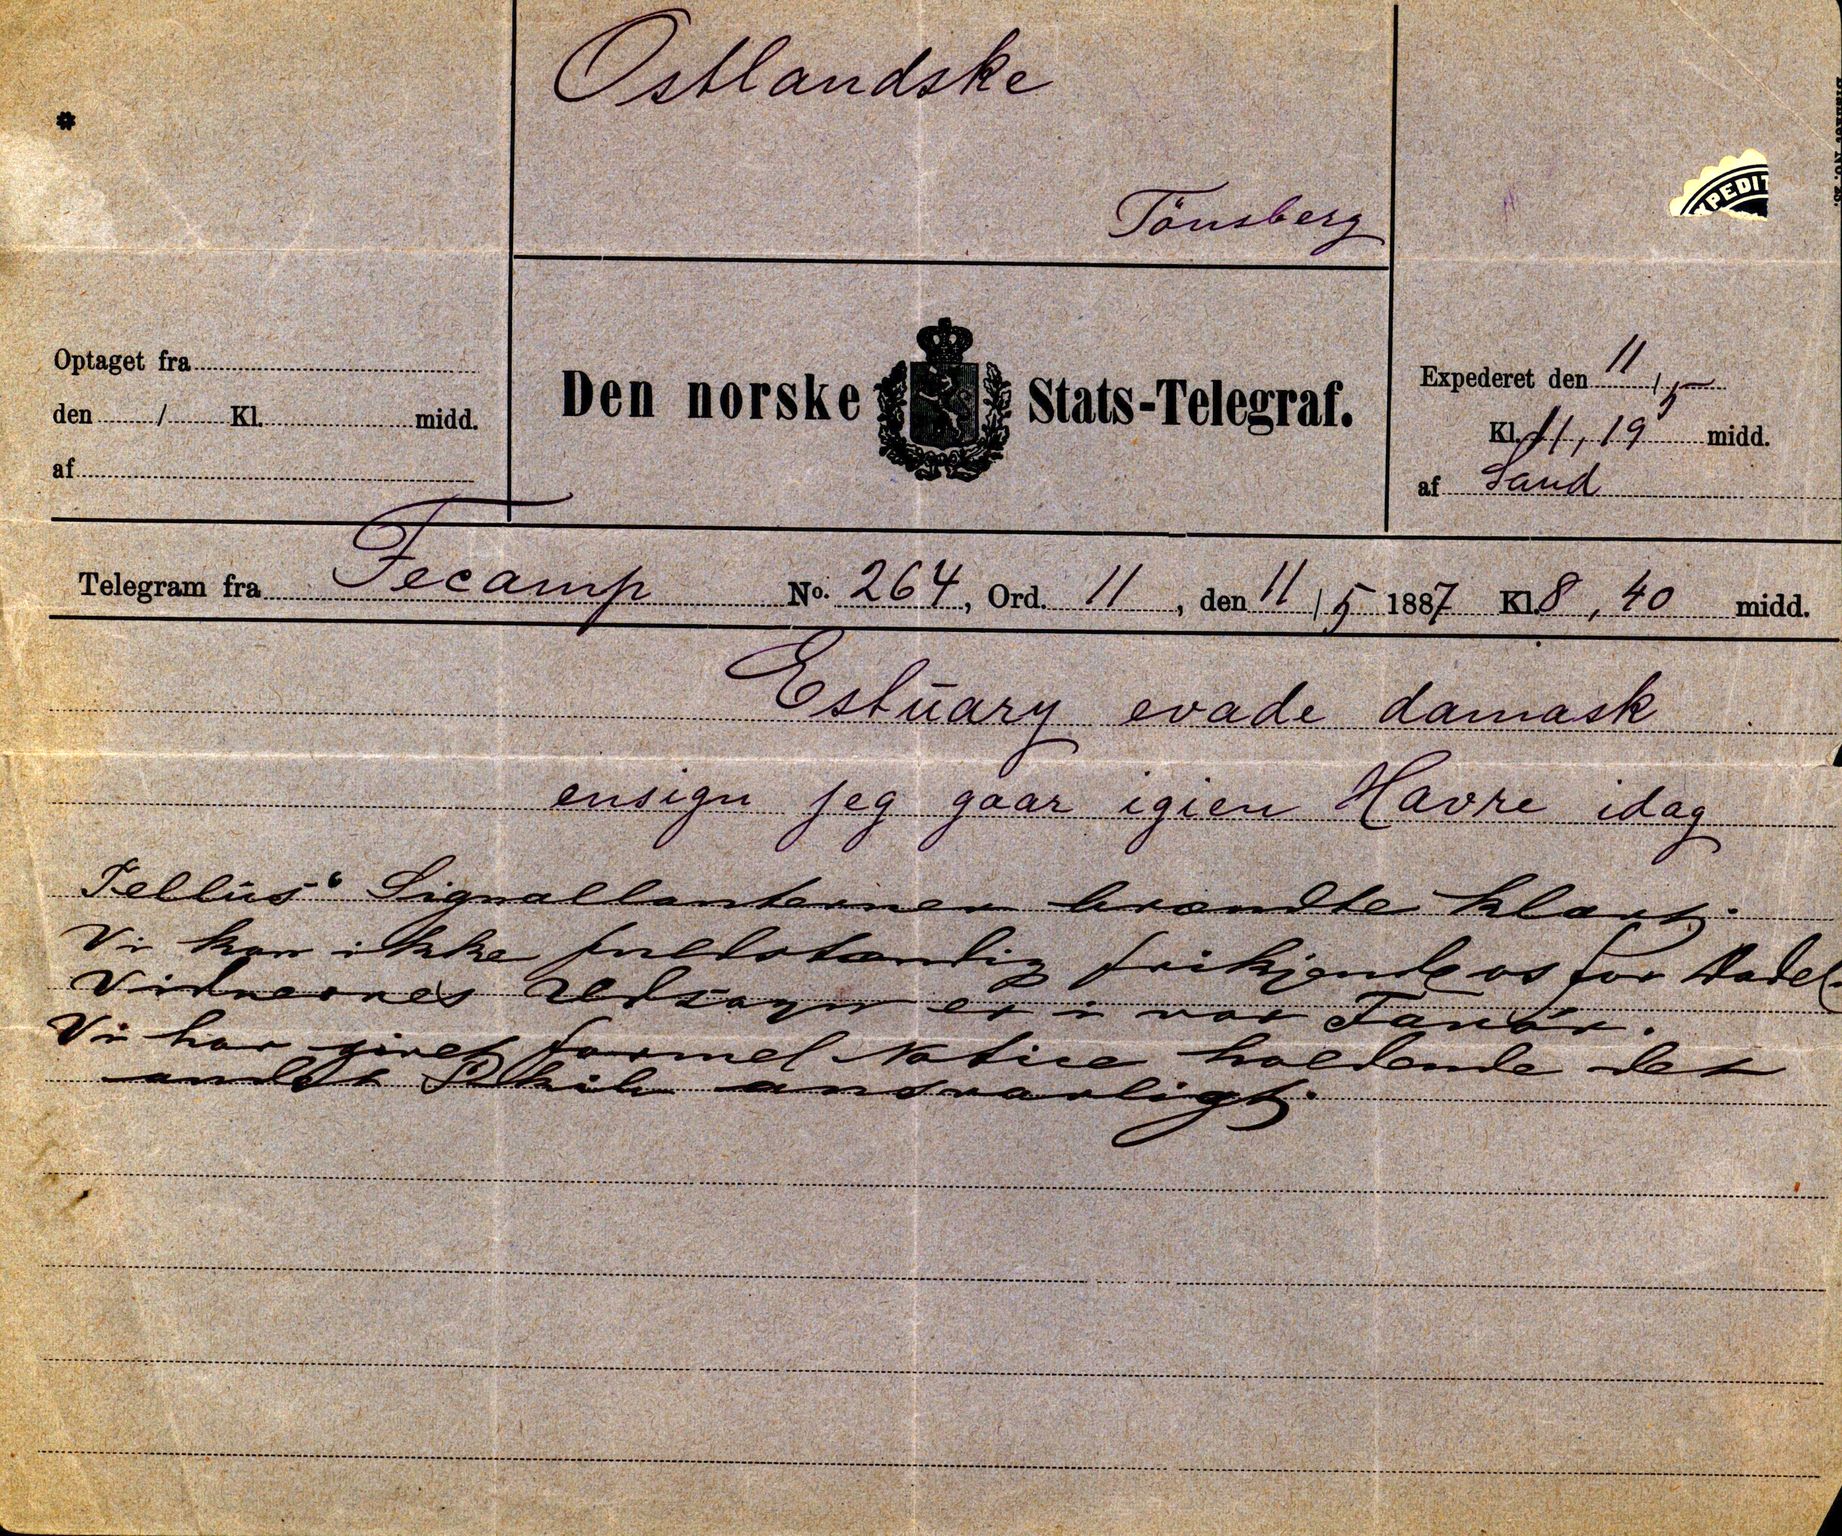 Ostlandske
Tönsberg
XPEDIT
Blanket No. 28.
Optaget fra
den / Kl. midd.
af
Den norske Stats-Telegraf.
Expederet den 11/5
Kl. 11,19 midd.
af Sand
Telegram fra Fecamp No. 264, Ord. 11, den 11/5 1887 Kl. 8,40 midd.
Estuary evade damask
ensign jeg gaar igien Havre idag
Tellus' Signallanterner brændte klart.
Vi kan ikke fuldstændig frikjende os for Dadel.
Vidnernes Udsagn er i vor Favör.
Vi har givet formel Notice holdende det
andet Skib ansvarligt.